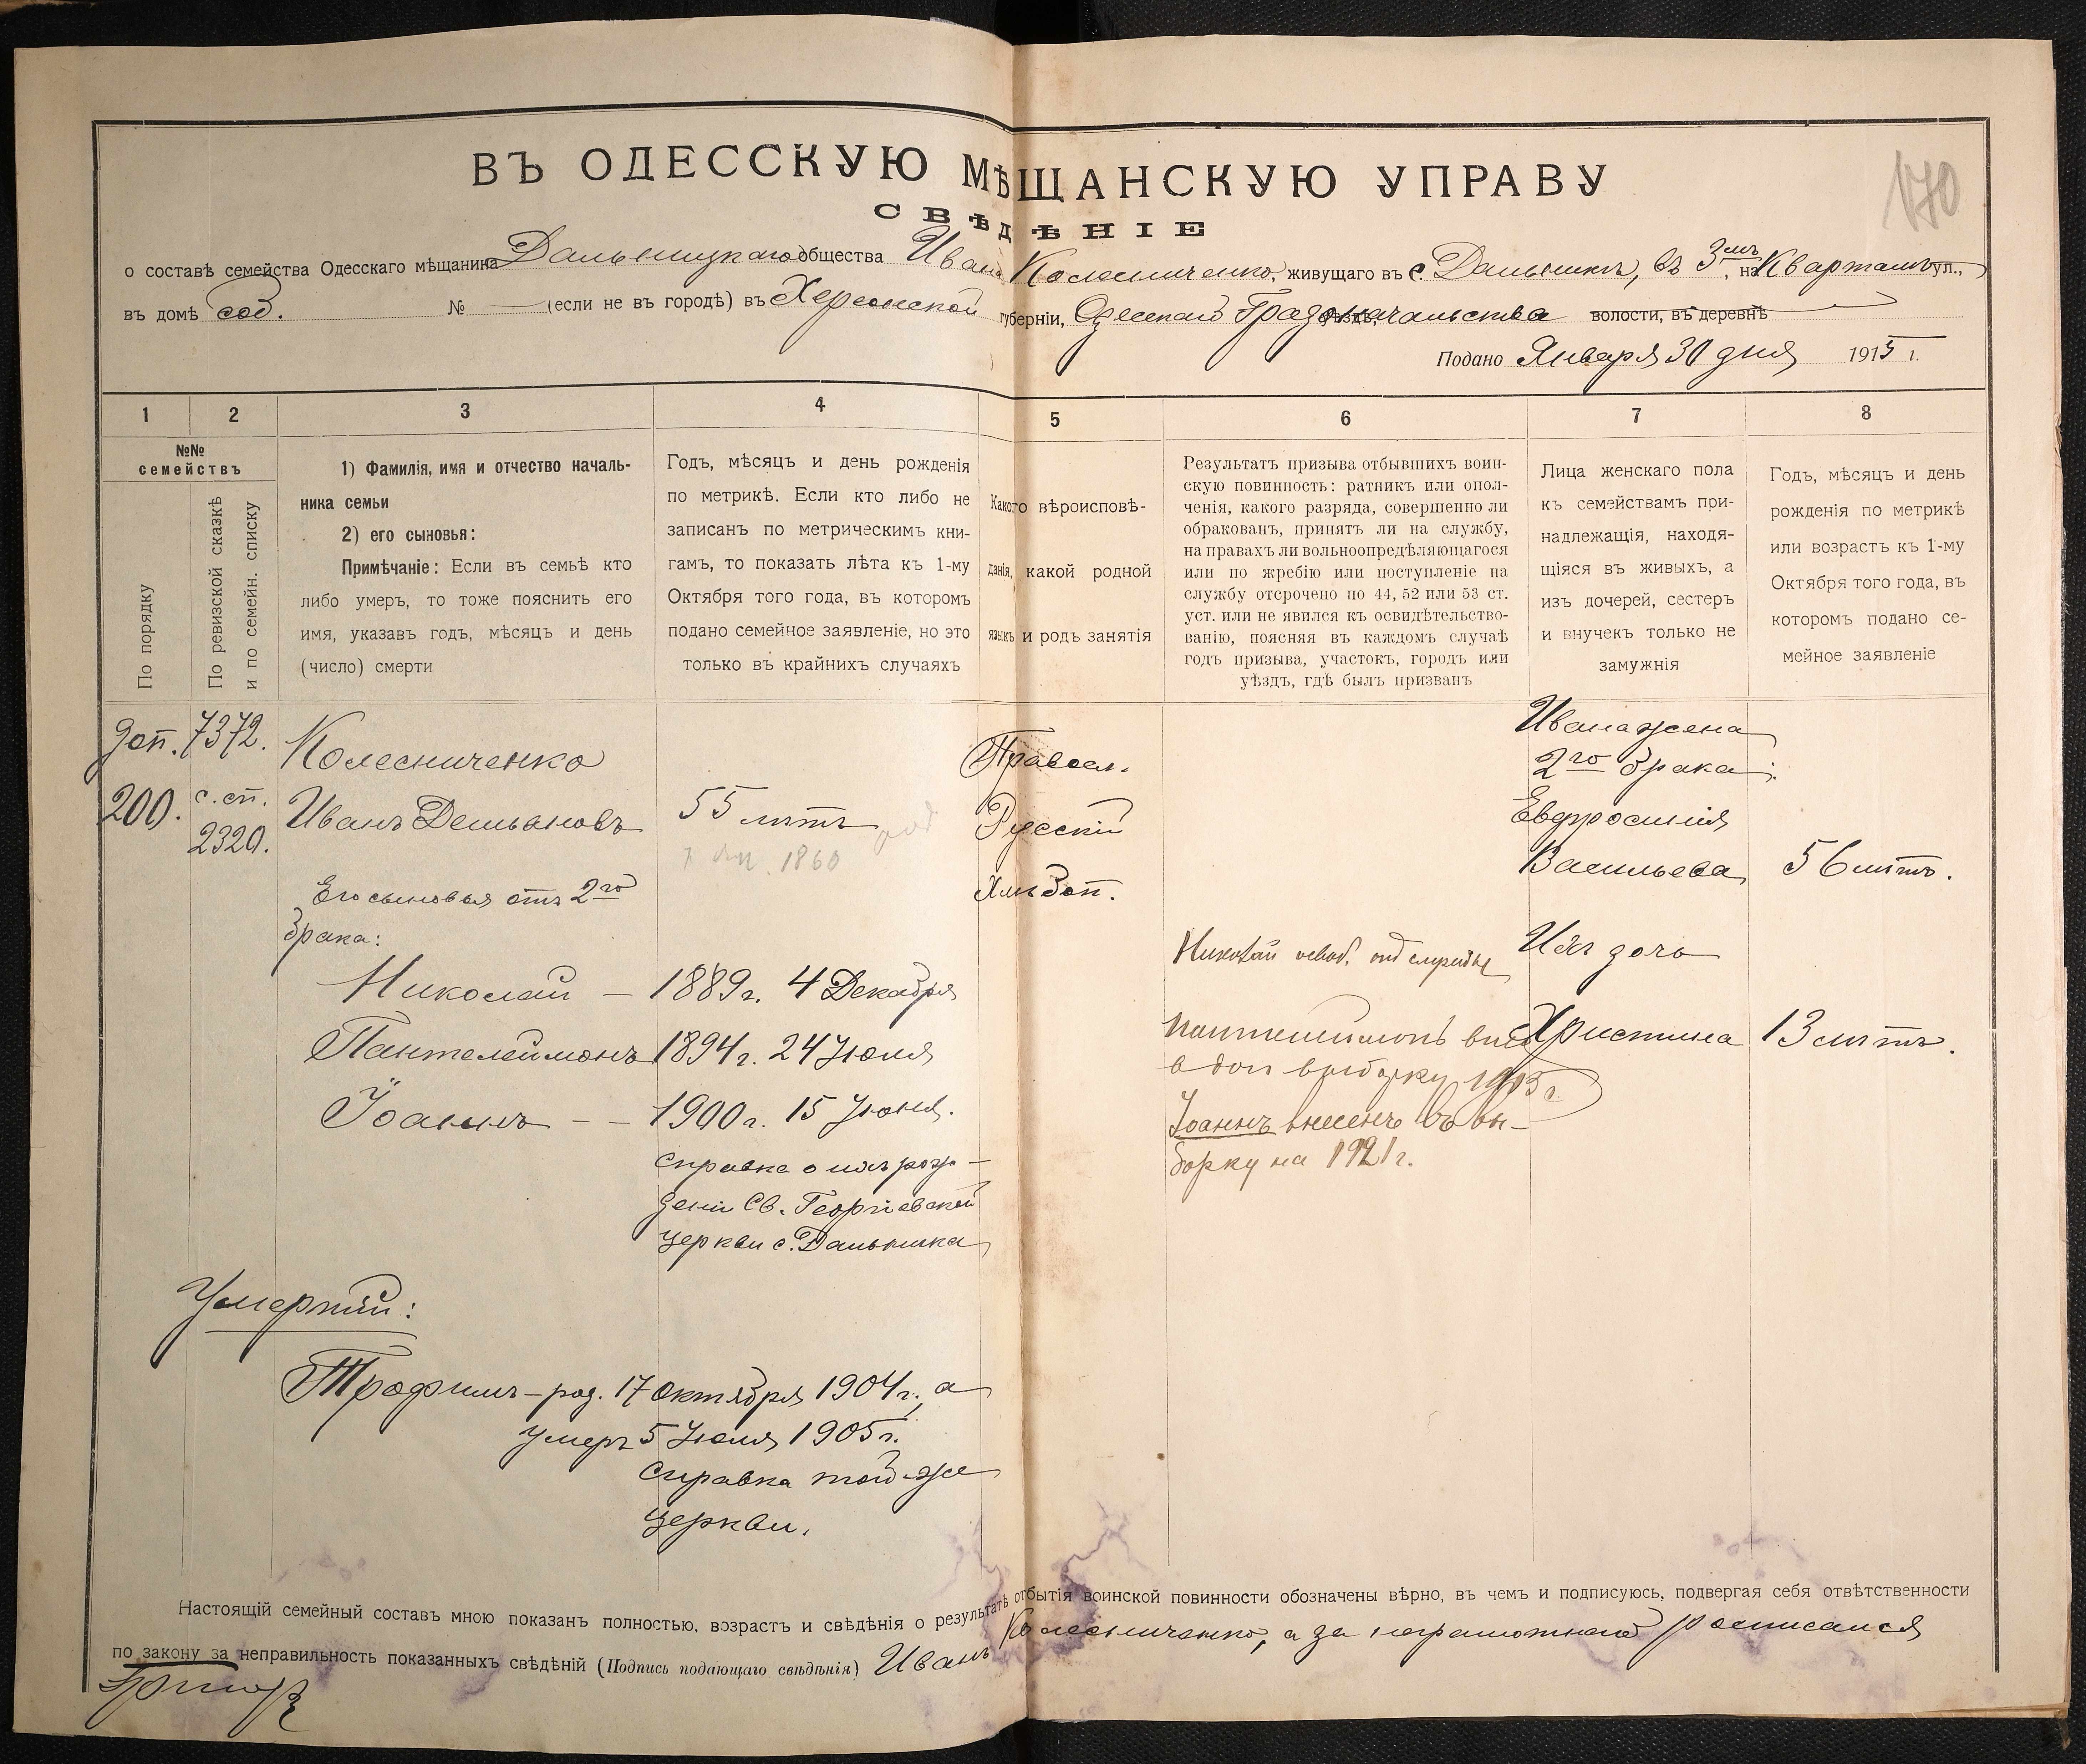 170
ВЪ ОДЕССКУЮ МѢЩАНСКУЮ УПРАВУ
СВѢДѢНІЕ
о составѣ семейства Одесскаго мѣщанина Дальницкаго общества Ивана Колесниченко, живущаго въ с. Дальникѣ, въ 3мъ на Кварталѣ ул.,
въ домѣ соб. № — (если не въ городѣ) въ Херсонской губерніи, Одесскаго Градоначальства уѣзда, волости, въ деревнѣ
Подано Января 30 дня 1915 г.
1 2 3 4 5 6 7 8
№№ семействъ
По порядку
По ревизской сказкѣ
и по семейн. списку
1) Фамилія, имя и отчество началь-
ника семьи
2) его сыновья:
Примѣчаніе: Если въ семьѣ кто
либо умеръ, то тоже пояснить его
имя, указавъ годъ, мѣсяцъ и день
(число) смерти
Годъ, мѣсяцъ и день рожденія
по метрикѣ. Если кто либо не
записанъ по метрическимъ кни-
гамъ, то показать лѣта къ 1-му
Октября того года, въ которомъ
подано семейное заявленіе, но это
только въ крайнихъ случаяхъ
Какого вѣроисповѣ-
данія, какой родной
языкъ и родъ занятія
Результатъ призыва отбывшихъ воин-
скую повинность: ратникъ или опол-
ченія, какого разряда, совершенно ли
обракованъ, принятъ ли на службу,
на правахъ ли вольноопредѣляющагося
или по жребію или поступленіе на
службу отсрочено по 44, 52 или 53 ст.
уст. или не явился къ освидѣтельство-
ванію, поясняя въ каждомъ случаѣ
годъ призыва, участокъ, городъ или
уѣздъ, гдѣ былъ призванъ
Лица женскаго пола
къ семействамъ при-
надлежащія, находя-
щіяся въ живыхъ, а
изъ дочерей, сестеръ
и внучекъ только не
замужнія
Годъ, мѣсяцъ и день
рожденія по метрикѣ
или возрастъ къ 1-му
Октября того года, въ
которомъ подано се-
мейное заявленіе
доп. 7372.
200. с. сп.
2320.
Колесниченко
Иванъ Демьановъ
Его сыновья отъ 2го
брака:
Николай —
Пантелеймонъ
Іоаннъ - -
55 лѣтъ
1860
1889 г. 4 Декабря
1894 г. 24 Іюля
1900 г. 15 Іюня.
справка о ихъ рож-
деніи Св. Георгіевской
церкви с. Дальника
Правосл.
Русскій
Хлѣбоп.
Николай освоб. от службы
Пантелеймонъ внес
в доп выборку 1915 г.
Іоаннъ внесенъ въ вы-
борку на 1921 г.
Ивана жена
2го брака:
Евфросинія
Васильева
Ихъ дочь
Христина
56 лѣтъ.
13 лѣтъ.
Умершій:
Трофимъ - род. 17 Октября 1904 г., а
умеръ 5 Іюля 1905 г.
Справка той-же
церкви.
Настоящій семейный составъ мною показанъ полностью, возрастъ и свѣдѣнія о результатѣ отбытія воинской повинности обозначены вѣрно, въ чемъ и подписуюсь, подвергая себя отвѣтственности
по закону за неправильность показанныхъ свѣдѣній (Подпись подающаго свѣдѣнія) Иванъ Колесниченко, а за неграмотнаго росписался